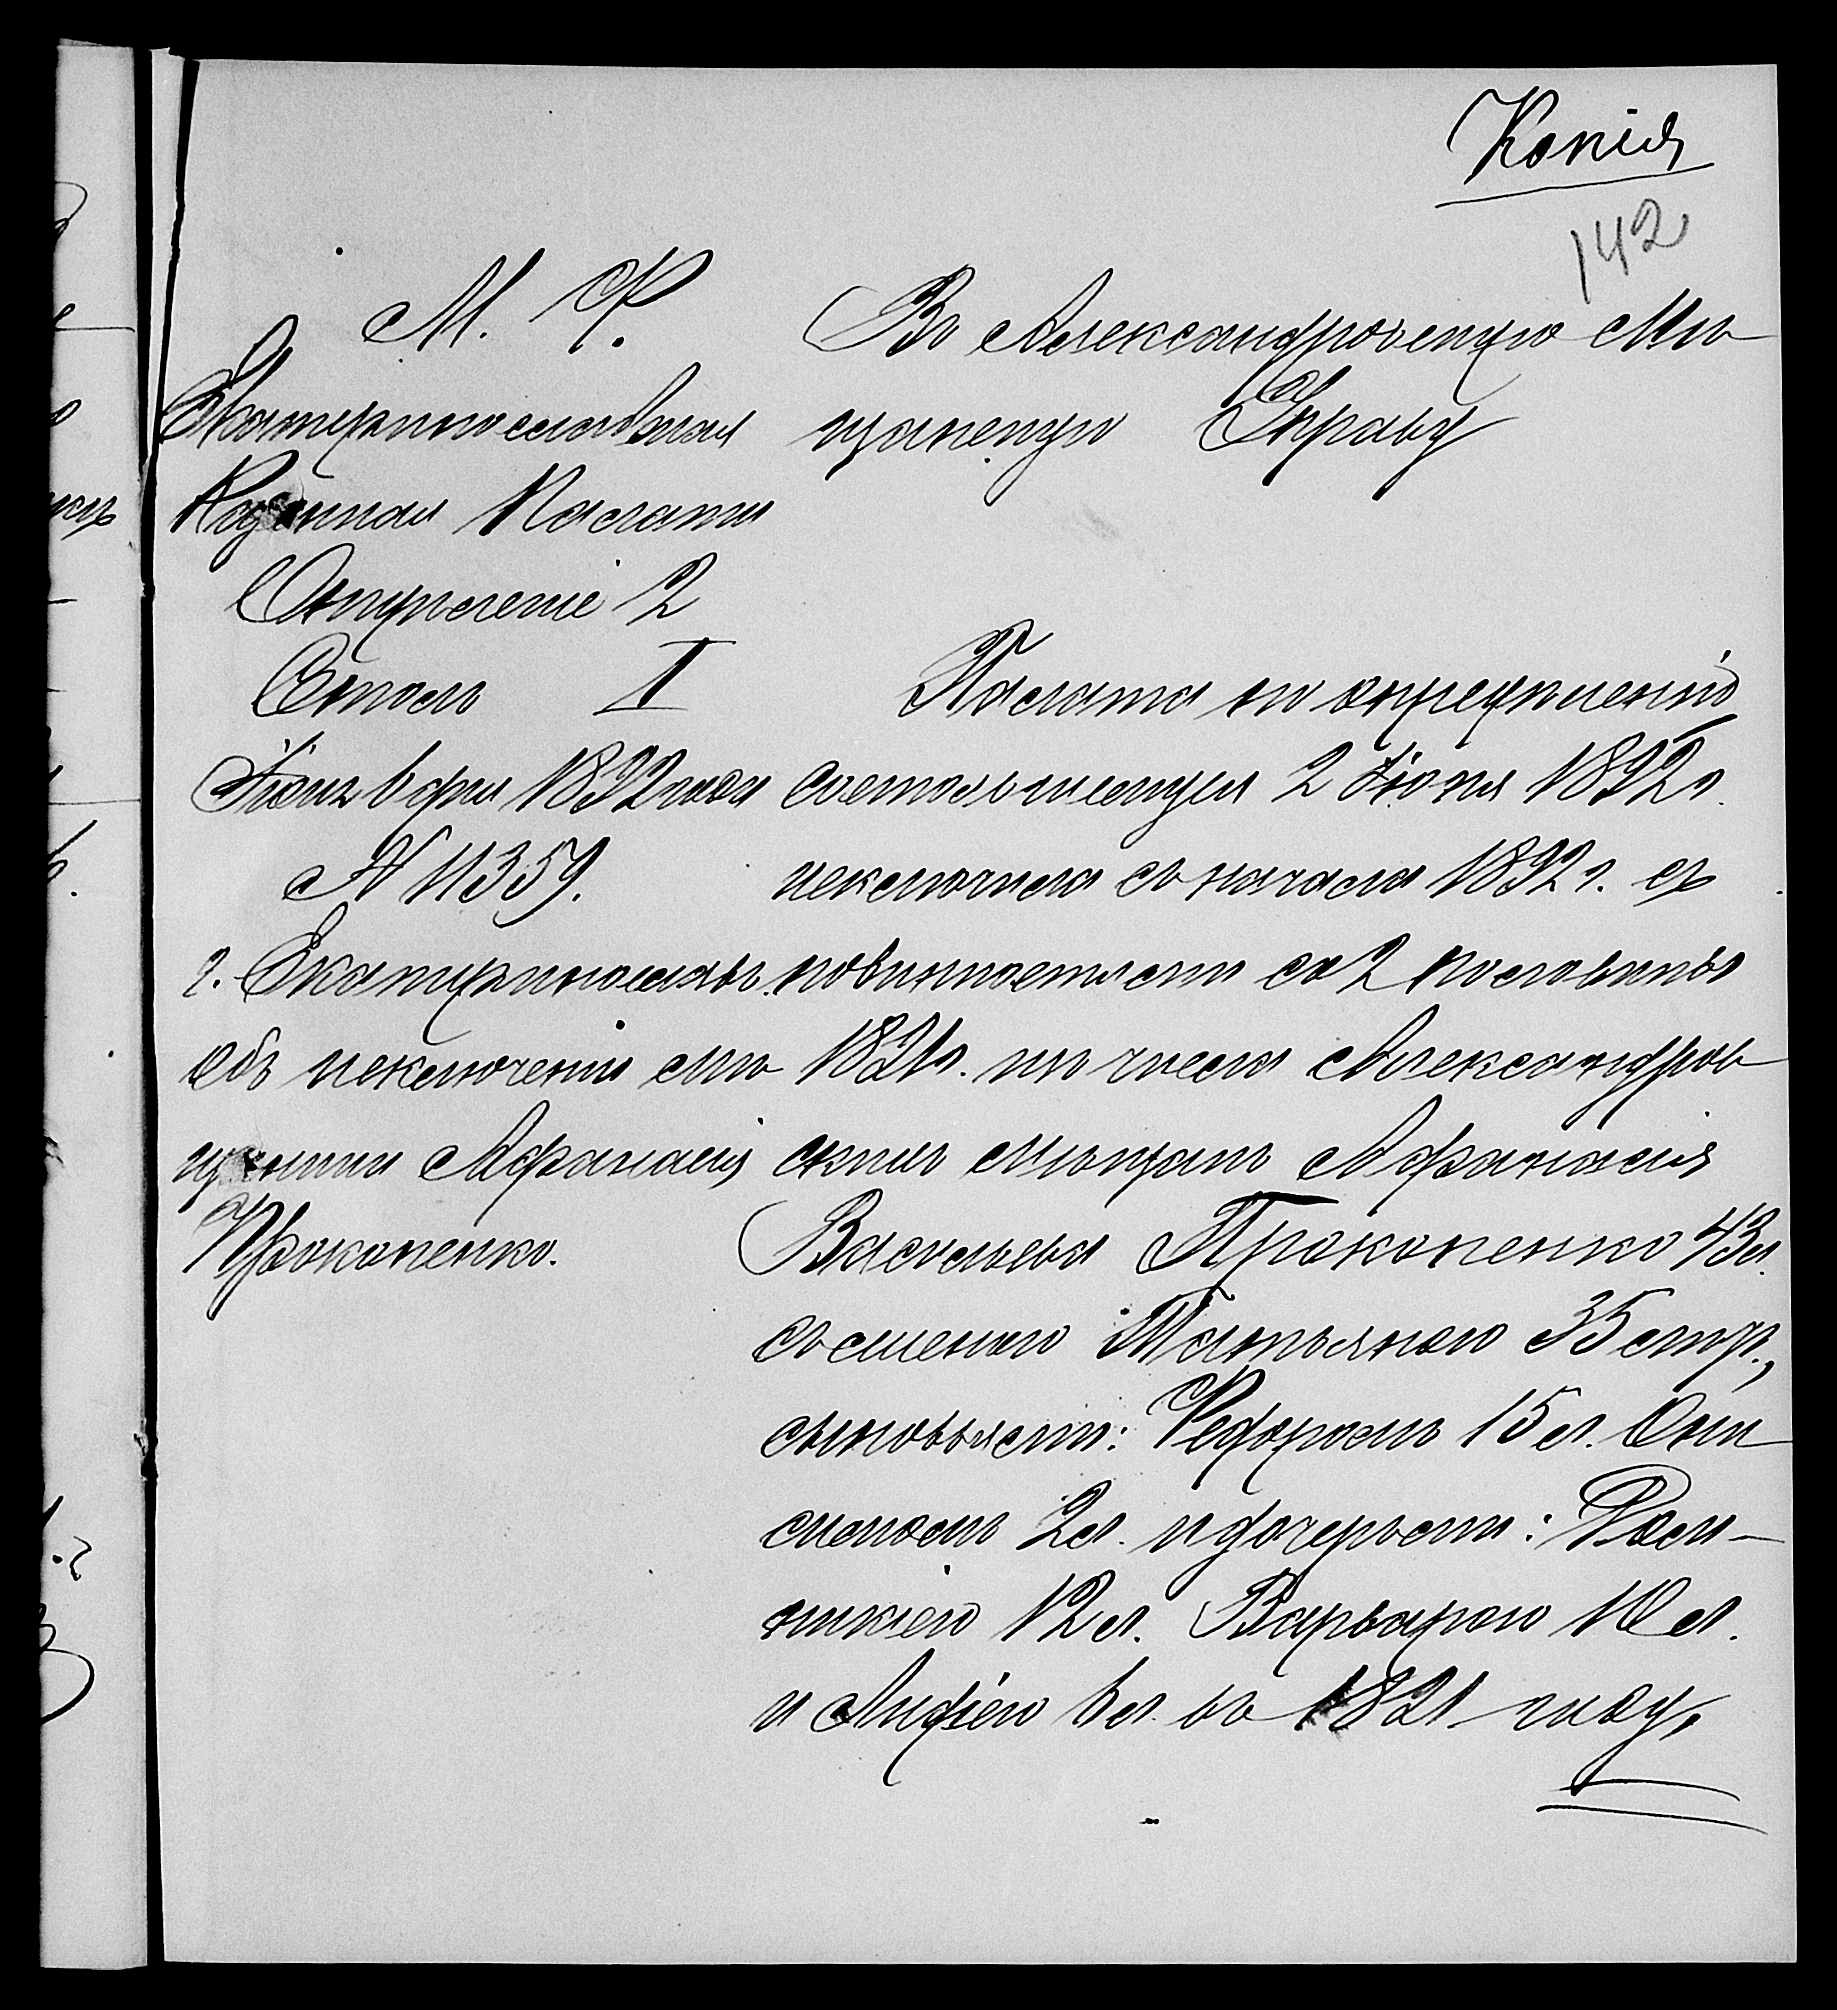 Копія
142
М. Ф.
Екатеринославская
Казенная Палата
Отдѣленіе 2
Столъ I
Іюня 6 дня 1892 года
№ 11359.
г. Екатеринославъ.
Объ исключеніи мѣ-
щанина Афанасія
Прокопенко.
Въ Александровскую Мѣ-
щанскую Управу
Палата по опредѣленію
состоявшемуся 2 Іюня 1892 г.
исключила съ начала 1892 г. съ
повинностями со 2 половины
1891 г. изъ числа Александров-
скихъ мѣщанъ Афанасія
Васильева Прокопенко 43 л.
съ женою Татьяною 35
сыновьями: Федоромъ 15 л.
2 л. и дочерьми:
12 л. Варварою 10 л.
и Лидіею 6 л. въ 1891 году.